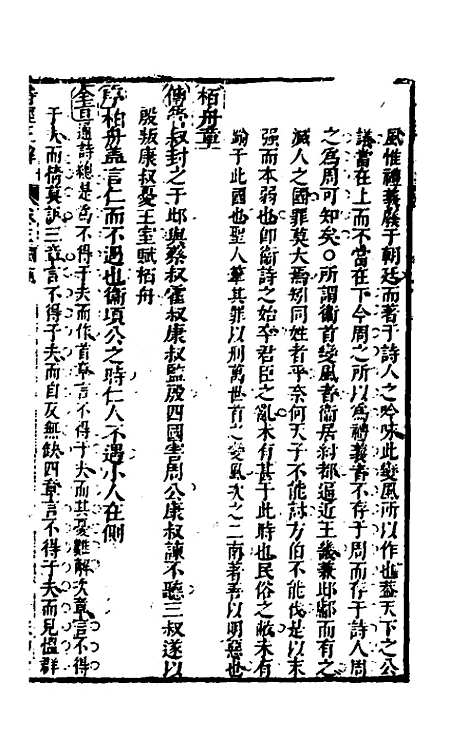 風惟禮義廢于朝廷而著于詩人之吟咏此變風所以作也蓋天下之公
議當在上而不當在下今周之所以爲禮義者不存于周而存于詩人周
之爲周可知矣○所謂衞首變風者衞居紂都逼近王畿兼邶鄘而有之
滅人之國罪莫大焉矧同姓者乎奈何天子不能討方伯不能伐是以末
强而本弱也卽衞詩之始卒君臣之亂未有甚于此時也民俗之敝未有
踰于此國也聖人筆其罪以刑萬世首之變風次之二南著善以明惡也
栢舟章
傳管叔封之于邶與蔡叔霍叔康叔監殷四國害周公康叔諫不聽三叔遂以
殷叛康叔憂王室賦栢舟
序栢舟葢言仁而不遇也衞頃公之時仁人不遇小人在側
全旨通詩總是爲不得于夫而作首章言不得于夫而其憂難解次章言不得
于夫而情莫訴三章言不得于夫而自反無缺四章言不得于夫而見慍群